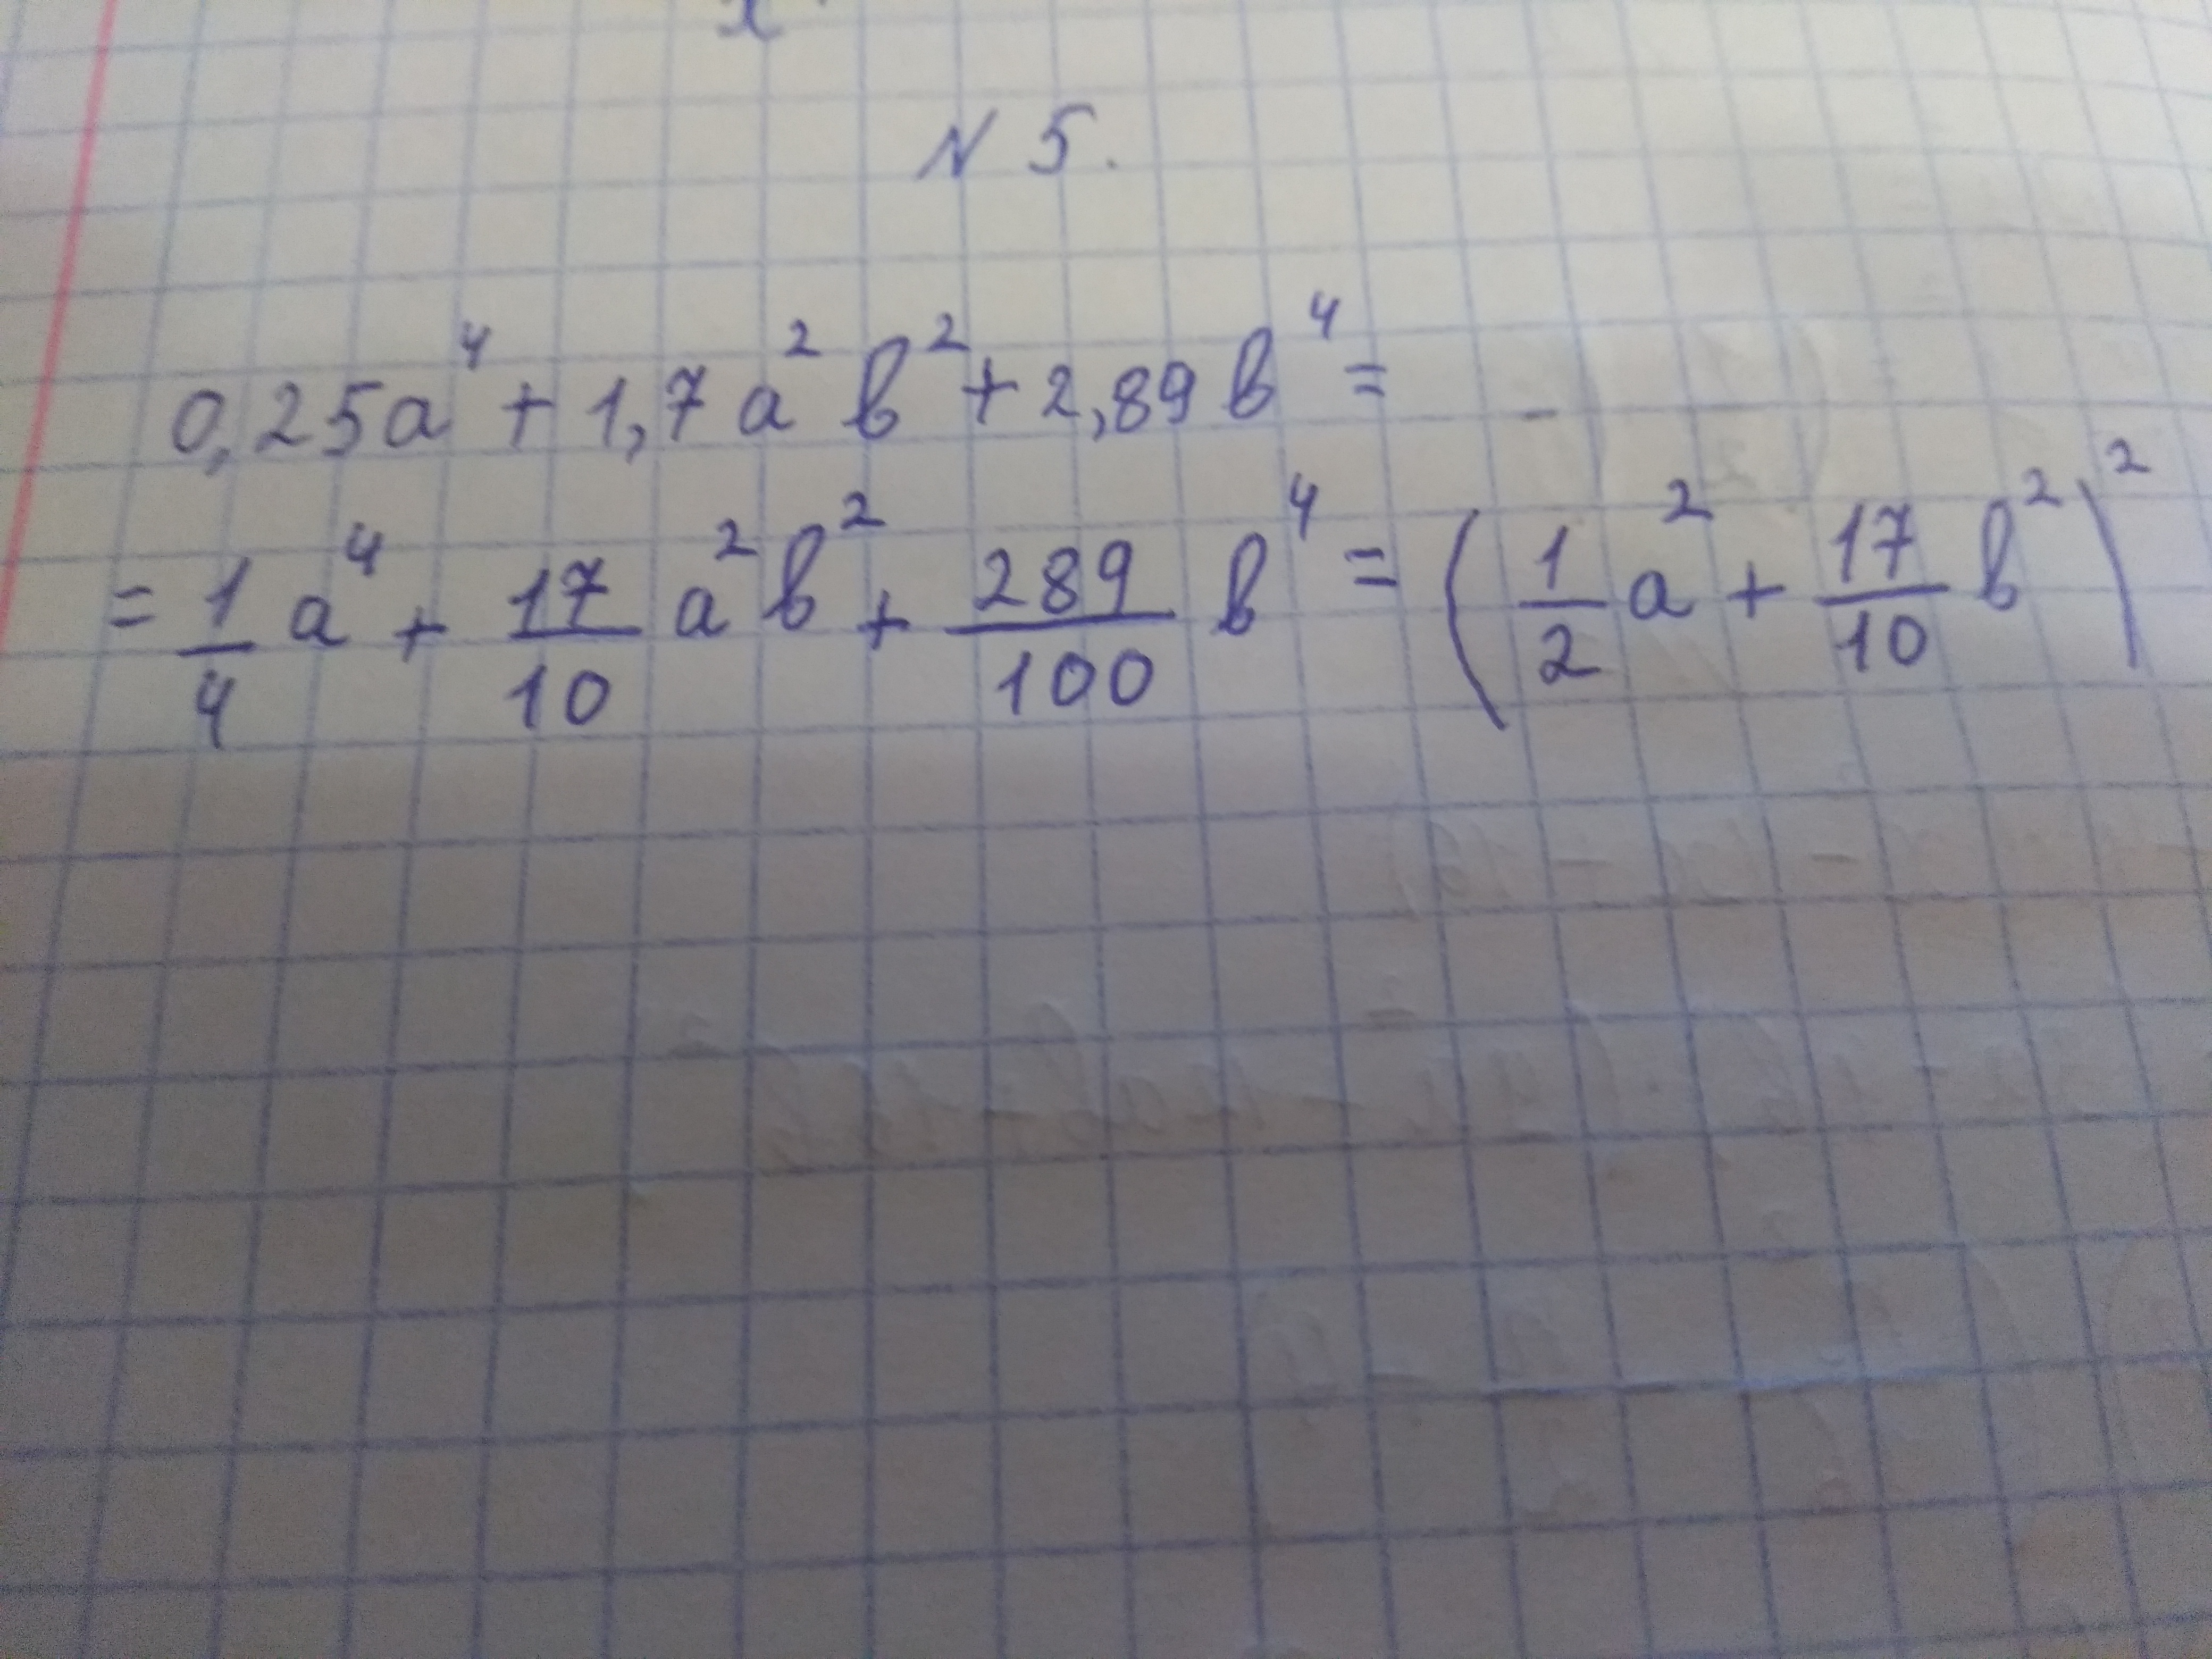 N 5.
0,25a⁴ + 1,7a²b² + 2,89b⁴ =
= 1/4 a⁴ + 17/10 a²b² + 289/100 b⁴ = (1/2 a² + 17/10 b²)²